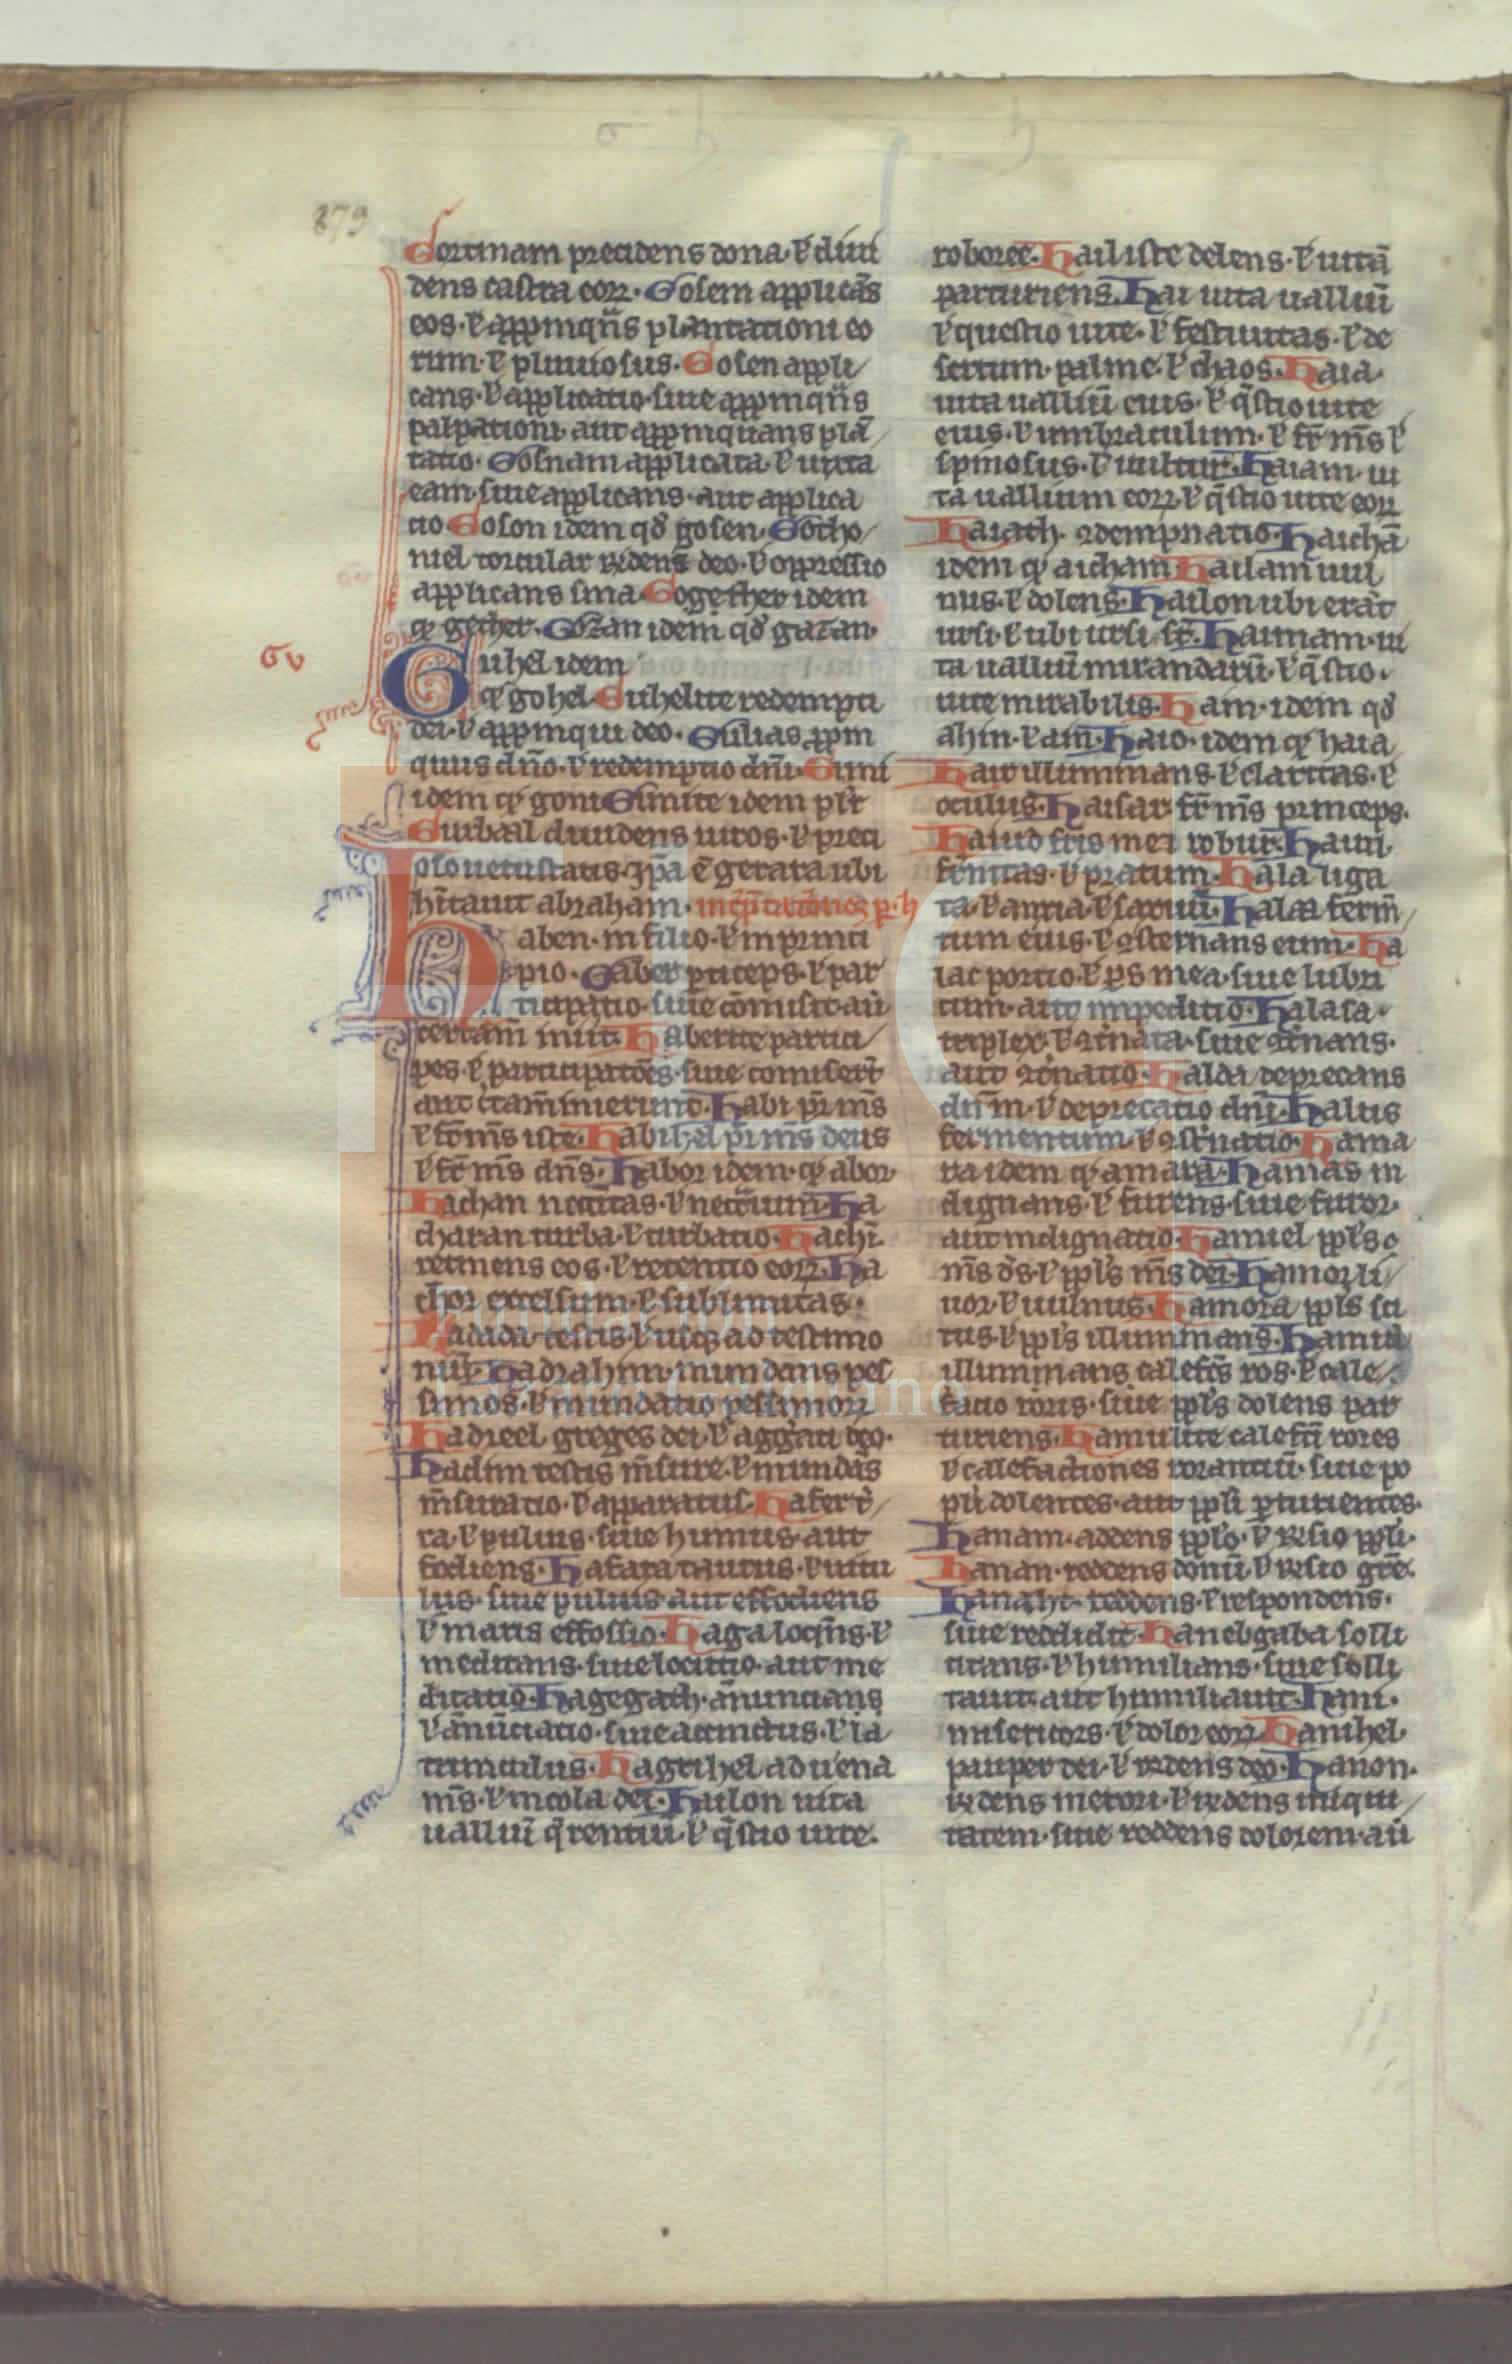 879
Gortinam precidens dona· ł diui
dens castra eorꝝ· Gosem applicās
eos· ł appinqn̄s plantationi eo
rum· ł pluuiosus· Gosen appli
cans· ł applicatio· siue appinqn̄s
palpationi· aut appinquans plā
tatio· Gosnam applicata· ł iuxta
eam· siue applicans· aut applica
tio Goson idem qd̓ gosen· Gotho
niel torcular r̄dens deo· ł oppressio
applicans sina· Gogether idem
qꝭ gether· Gozan idem qd̓ gazan·
Gu
Guhel idem
qꝭ gohel· Guhelite redempti
dei· ł appinqui deo· Gulias ꝓpin
quus dn̄o· ł redemptio dn̄i· Guni
idem qꝭ goni Gunite idem pl̓r
Gurbaal diuidens uiros· ł preci
olo uetustatis· Ip̄a ē gerara ubi
hītauit abraham·
Haben· in filio· ł in princi
pio· Haber p̄nceps· ł par
ticipatio· siue cōmisit· aū
certam̄ iniit· Haberite partici
pes· ł participatōes· siue comisert̄
aut c̓tam̄ inierunt· Habi pr̄ m̄s
ł fr̄ m̄s iste· Habihel pr̄ m̄s deus
ł fr̄ m̄s dn̄s· Habor idem· qꝭ abor·
Hachan necc̄itas· ł necc̄ium· Ha
charan turba· ł turbatio· Hachī
retinens eos· ł retentio eorꝝ· Ha
chor excelsum· ł sublimitas·
Hadada testis· ł usqꝫ ad testimo
niū· Hadrahim· mundans pes
simos· ł mundatio pessimorꝝ
Hadreel greges dei· ł aggati deo·
Hadim testis m̄sure· ł mundās
m̄suratio· ł apparatus· Hafer t̓
ra· ł puluis· siue humus· aut
fodiens· Hafara taurus· ł uitu
lus· siue puluis· aut effodiens
ł maris effossio· Haga loqn̄s· ł
meditans· siue locutio· aut me
ditatio· Hagegath· ānuncians
ł ānūciatio· siue accinctus· ł la
tumulus· Hagrihel aduena
m̄s· ł incola dei· Hailon uita
ualliū q̄rentiū· ł q̄stio uite·
roboree· Hail iste delens· ł uitā
parturiens· Hai uita ualliū
ł questio uite· ł festiuitas· ł de
sertum· palme· ł chaos· Haia·
uita ualliū eius· ł q̄stio uite
eius· ł umbraculum· ł fr̄ m̄s ł
spinosus· ł uultur· Haiam· ui
ta uallium eorꝝ· ł q̄stio uite eorꝝ
Haiath· ꝯdempnatio· Haichā
idem qꝭ aicham Hailam uni
nus· ł dolens· Hailon ubi erāt
ursi· ł ubi ursi· sr̄· Hainam· ui
ta ualliū mirandarū· ł q̄stio·
uite mirabilis· Haim· idem qd̓
ahin· ł aim̄· Haio· idem qꝭ haia
Hair illuminans· ł claritas· ł
oculus· Haisar· fr̄ m̄s princeps·
Haiud fr̄is mei robur· Hauri·
fr̄nitas· ł pratum· Hala liga
ta· ł antia· ł saxum· Halaa ferm̄
tum eius· ł ꝯsternans eum· Ha
lac portio· ł ps mea· siue lubri
cum· aut impeditio· Halasa·
triplex· ł ꝯtn̄ata· siue ꝯtn̄ans·
aut ꝯtn̄atio· Halda deprecans
dn̄m· ł deprecatio dn̄i· Halus
fermentum· ł ꝯst̓natio· Hama
ra idem qꝭ amara· Hamas in
dignans· ł furens· siue furor·
aut indignatio· Hamiel ppl̓s
m̄s d̓s· ł ppl̓s m̄s dei· Hamor li
uor· ł uulnus· Hamora ppl̓s sci
tus· ł ppl̓s illuminans· Hamul
illuminans calefcs̄ ros· ł cale
factio roris· siue ppl̓s dolens par
turiens· Hamulite calefc̄i rores
ł calefactiones rorantiū· siue po
puli dolentes· aut ppl̓i ꝑturientes·
Hanam· addens ppl̓o· ł r̄sio ppl̓i·
Hanan· reddens donū· ł r̄sio gr̄e·
Hanaht· reddens· ł respondens·
siue reddidit· Hanebgaba solli
citans· ł humilians· siue solli
tauit· aut humiliauit· Hani·
misericors· ł dolor eorꝝ· Hanihel·
pauper dei· ł r̄dens deo· Hanon·
r̄dens merori· ł r̄dens iniqui
tatem· siue reddens dolorem· aū
Fundación